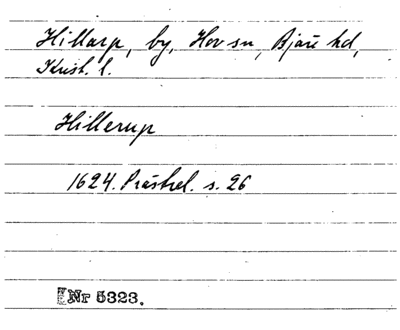 Hillarp, by, Hov sn, Bjäre hd,
Krist. l.
Hillerup
1624. Prästrel. s. 26
Nr 5323.